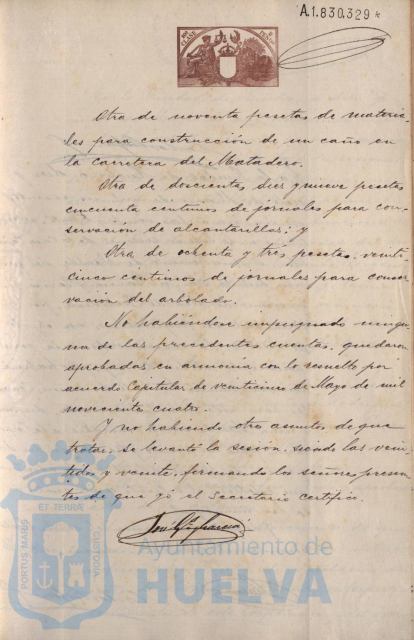 A.1.830.329
Otra de noventa pesetas de materia-
les para construcción de un caño en
la carretera del Matadero.
Otra de doscientas diez y nueve pesetas
cincuenta centimos de jornales para con-
servación de alcantarillas; y
Otra de ochenta y tres pesetas, veinti-
cinco centimos de jornales para conser-
vación del arbolado.
No habiéndose impugnado ningu-
na de las precedentes cuentas, quedaron
aprobadas en armonia con lo resuelto por
acuerdo Capitular de veinticinco de Mayo de mil
novecientos cuatro.
Y no habiendo otros asuntos de que
tratar, se levantó la sesión, siendo las vein-
tidos y veinte, firmando los señores presen-
tes de que yó el Secretario certifico.
PORTUS MARIS
ET TERRÆ
CUSTODIA
Ayuntamiento de
HUELVA